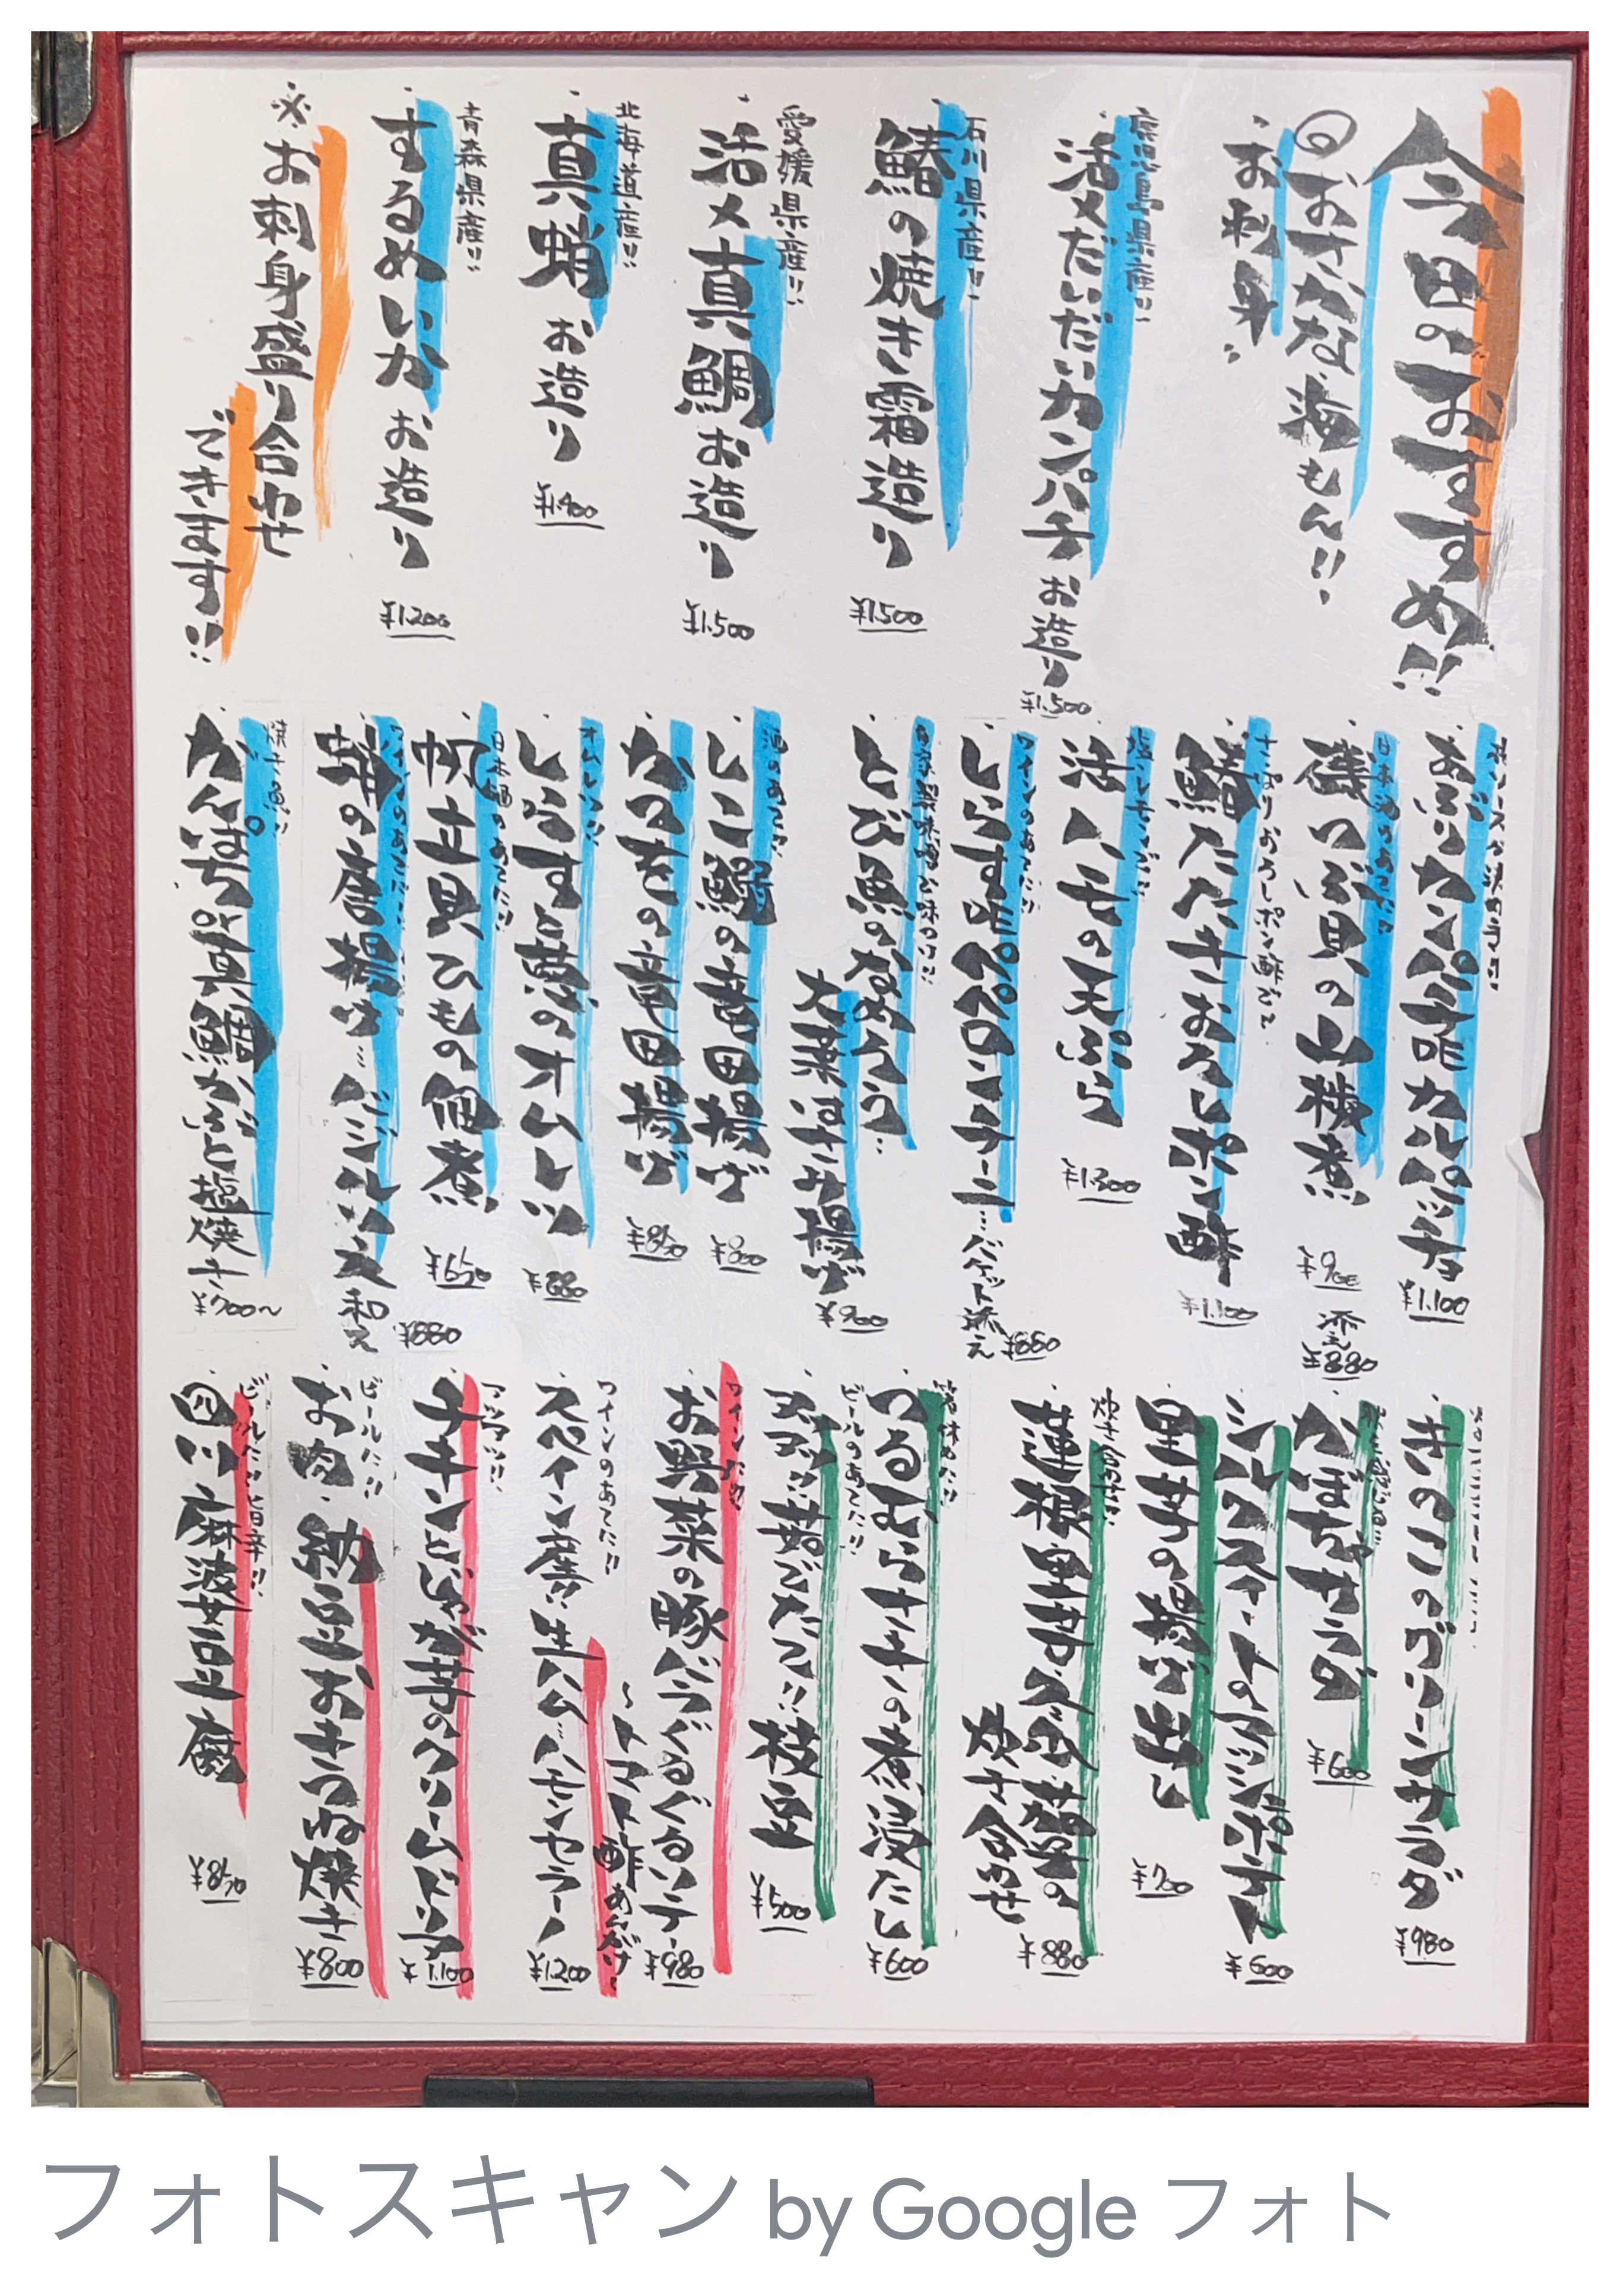 今日のおすすめ!!
◎おさかな 海もん!!
お刺身
鹿児島県産!!
活〆だいだいカンパチ お造り ¥1.500
石川県産!!
鰆の焼き霜造り ¥1.500
愛媛県産!!
活〆真鯛お造り ¥1.500
北海道産!!
真蛸 お造り ¥1.400
青森県産!!
するめいか お造り ¥1.200
※お刺身盛り合わせ
できます!!
カンパチ カルパッチョ ¥1.100
日本酒のあてに!!
磯つぶ貝の山椒煮 ¥900
さっぱりおろしポン酢で
鰆たたきおろしポン酢 ¥1.100
活ハモの天ぷら ¥1.300
ワインのあてに!!
しらすdeペペロンチーニ…バゲット添え ¥880
添え ¥880
自家製味噌で味つけ!!
とび魚のなめろう…
大葉はさみ揚げ ¥900
酒のあてに!!
しこ鰯の竜田揚げ ¥800
かつをの竜田揚げ ¥850
オムレツ!!
しらすと葱のオムレツ ¥880
日本酒のあてに!!
帆立貝ひもの佃煮 ¥650
ワインのあてに!!
蛸の唐揚げ…バジルソース和え ¥880
焼き魚!!
かんぱちor真鯛かぶと塩焼き ¥700〜
きのこのグリーンサラダ ¥980
かぼちゃサラダ ¥600
シルクスイートのマッシュポテト ¥600
里芋の揚げ出し ¥700
炊き合わせ!!
蓮根里芋ズッキーニ茄子の
炊き合わせ ¥880
箸休めに!!
つるむらさきの煮浸たし ¥600
ビールのあてに!!
アツアツ!!茹でたて!!枝豆 ¥500
ワインに!!
お野菜の豚バラぐるぐるソテー ¥980
〜トマト酢あんがけ〜
ワインのあてに!!
スペイン産!!生ハム…ハモンセラーノ ¥1.200
アツアツ!!
チキンとじゃが芋のクリームドリア ¥1.100
ビールに!!
お肉・納豆おきつね焼き ¥800
ビールに!!旨辛!!
四川麻婆豆腐 ¥850
フォトスキャン by Google フォト